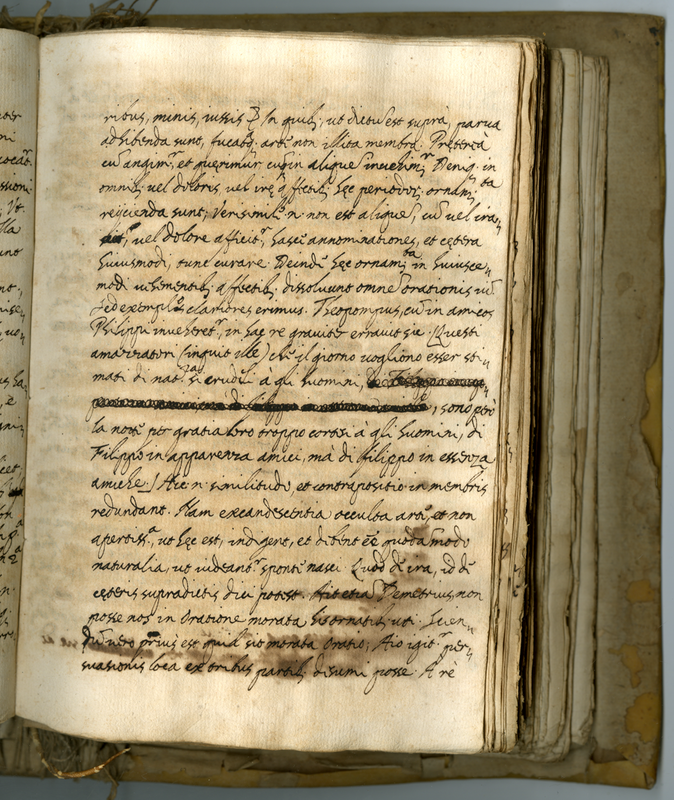 ribus, minis, iussis. In quib; ut dictū est suprà, parva
adhibenda sunt, fucataq; artē non illita membra. Prętereà
cū angimr, et querimur cuipiam aliquē Deniq; in
omnib; vel doloris, vel irę affectib; hęc periodor ornamta
reijcienda sunt; Verisimilē n. non est aliquē, cū vel ira,
vel dolore afficitr, hasce annominationes, et cętera
huiusmodi, tunc curare. Deindē hęc ornamta in huiusce=
modi vehementib; affectib; dissolvunt omnē orationis vī.
sed exemplis clariores erimus. Theopompus, cū in amicos
Philippi inveheretr, in hac re graviter erravit sic. Questi
amazzatori (inquit ille) chē il giorno vogliono esser sti=
mati di natra sì crudeli à gli huomini, sono però
la nottē per gratia loro troppo cortesi à gli huomini, di
Filippo in apparenza amici, mà di filippo in essenza
amiche.] Hic n. similitudo, et contrapositio in membris
redundant. Nam excandescentia occulta artē, et non
apertissa, ut hęc est, indiget, et debent eē quodāmodo
naturalia, ut videantr spontē nasci. Quod dē ira, id dē
cęteris supradictis dici potest. Ait etiā Demetrius, non
posse nos in Oratione morata his ornatib; uti. Scien=
dū vero prius est quid sit morata Oratio; Aio igitr per=
suasionis loca ex tribus partib; desumi posse. A rè